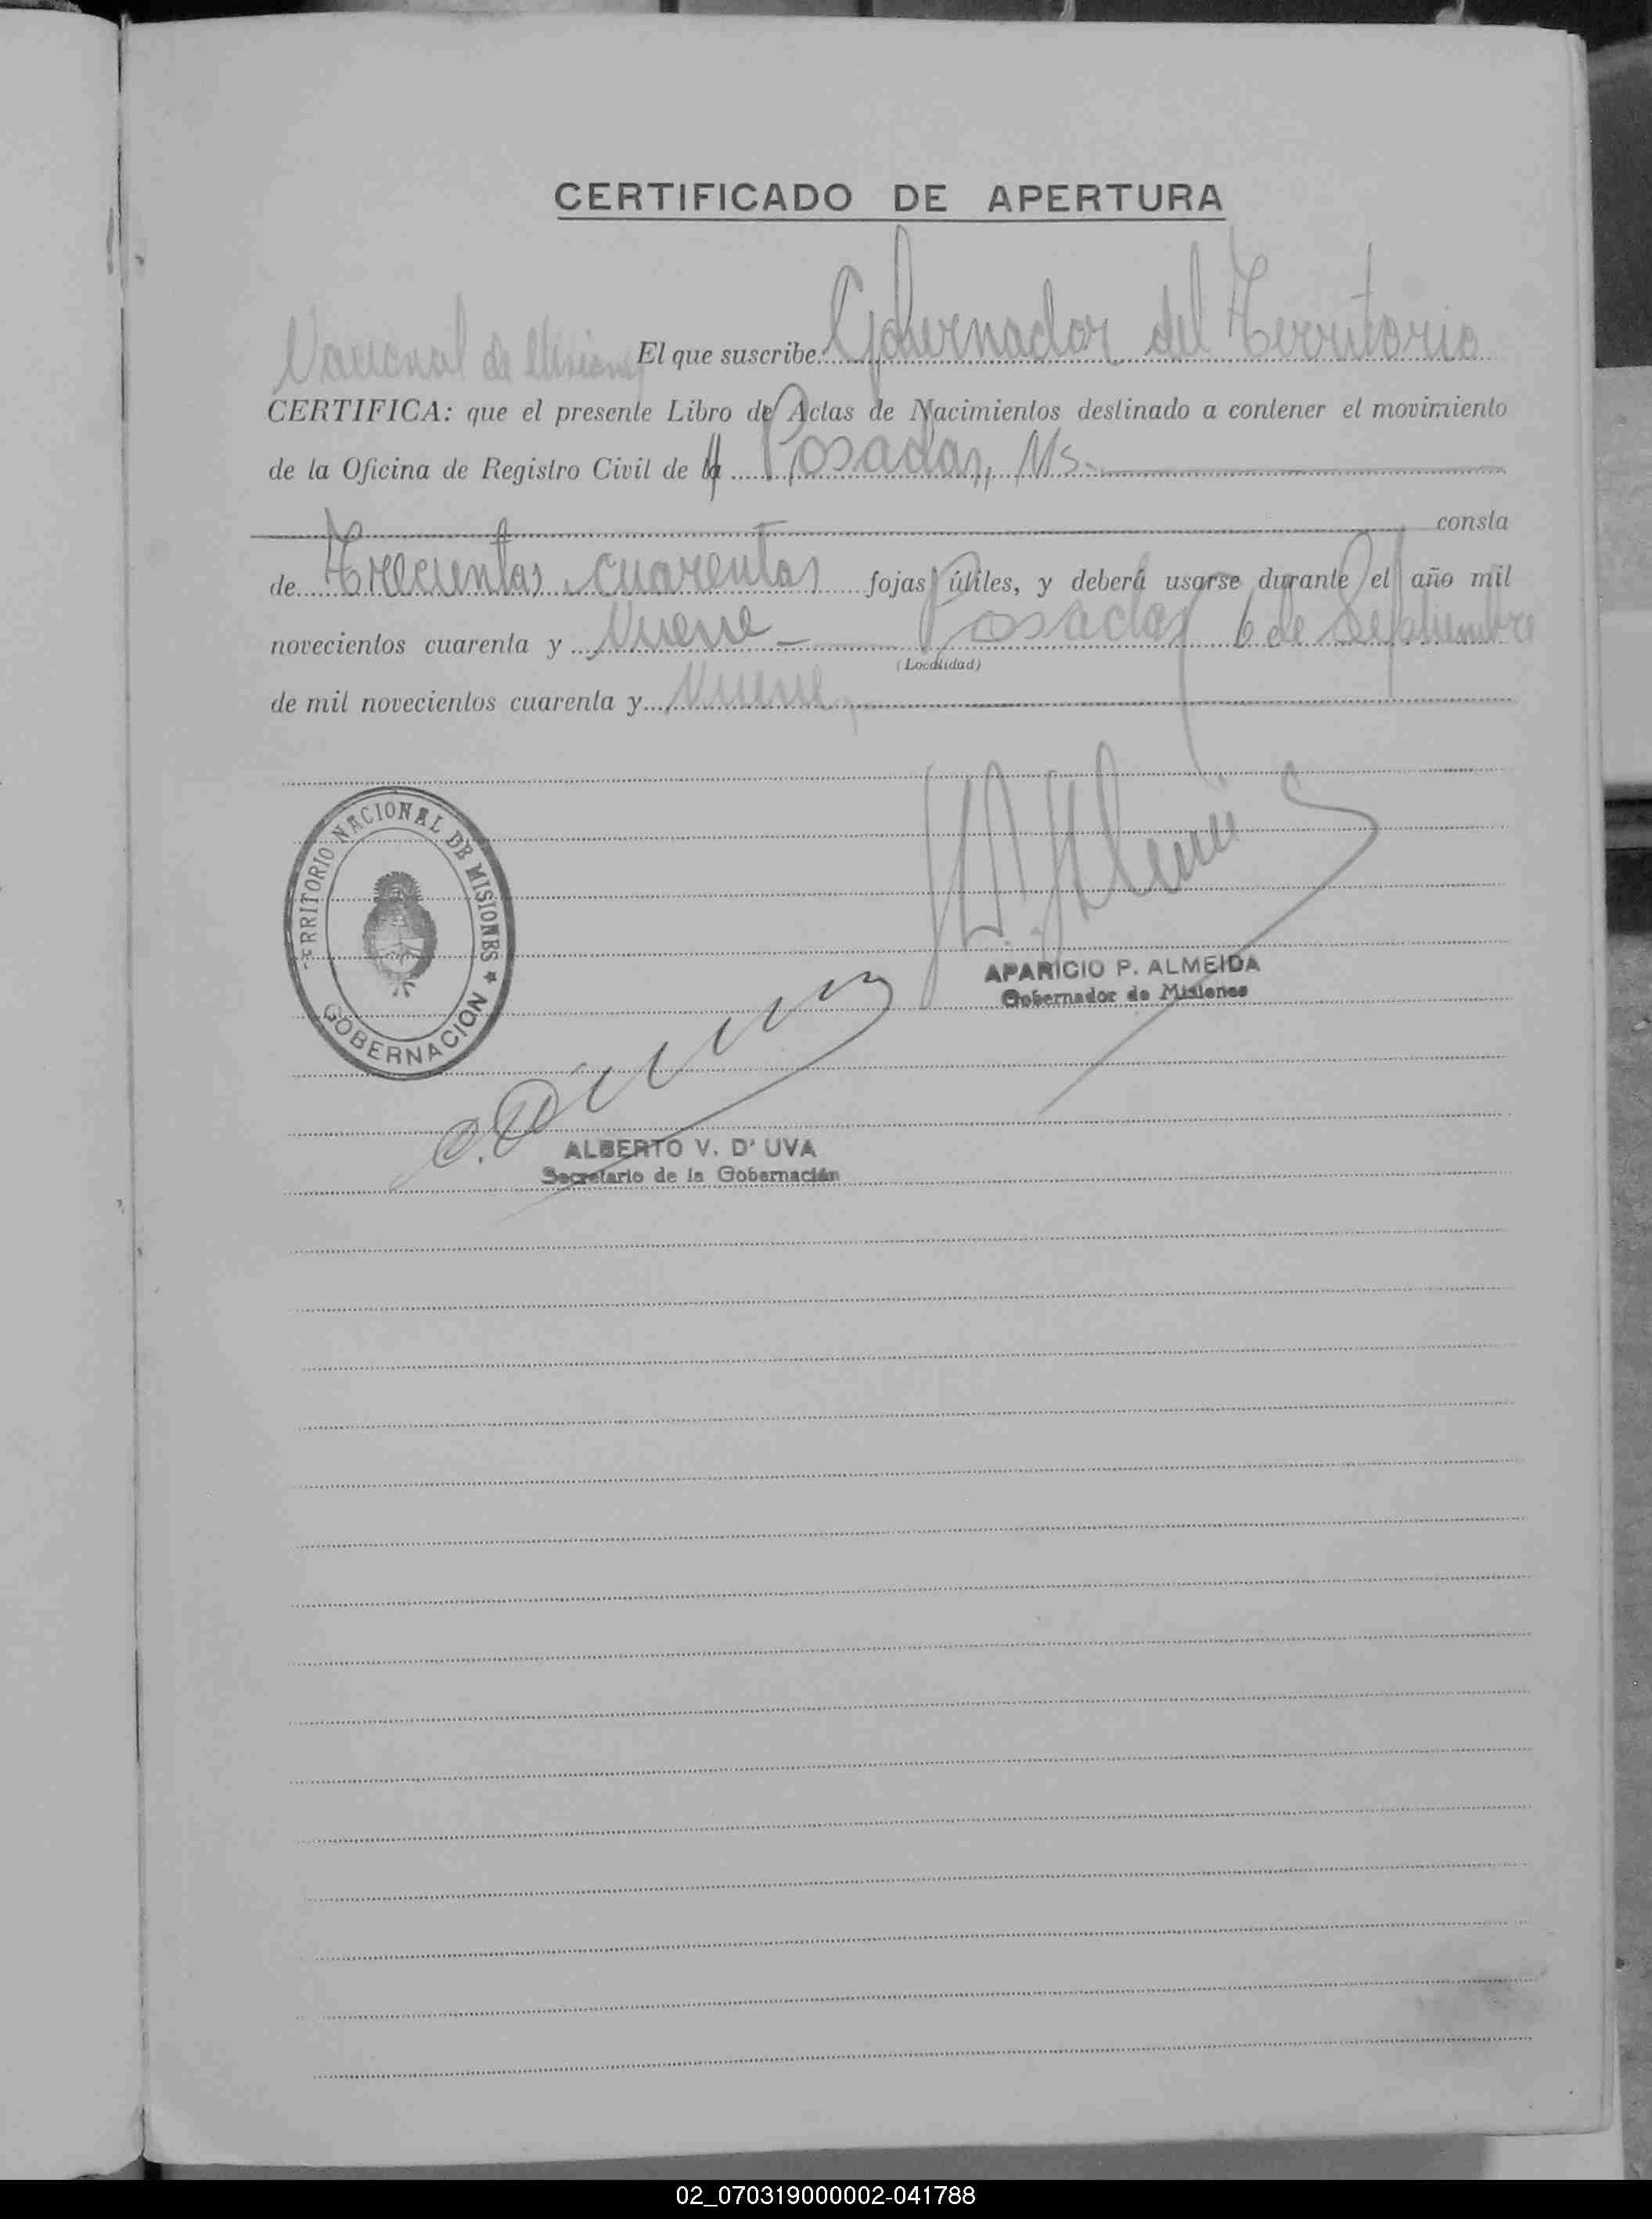 CERTIFICADO DE APERTURA
El que suscribe Gobernador del Territorio
Nacional de Misiones
CERTIFICA: que el presente Libro de Actas de Nacimientos destinado a contener el movimiento
de la Oficina de Registro Civil de la Posadas, Ms.
consta
de Trecientas cuarentas fojas útiles, y deberá usarse durante el año mil
novecientos cuarenta y Nueve Posadas 6 de Septiembre
(Localidad)
de mil novecientos cuarenta y Nueve
TERRITORIO NACIONAL DE MISIONES
GOBERNACION
APARICIO P. ALMEIDA
Gobernador de Misiones
ALBERTO V. D' UVA
Secretario de la Gobernación
02_070319000002-041788